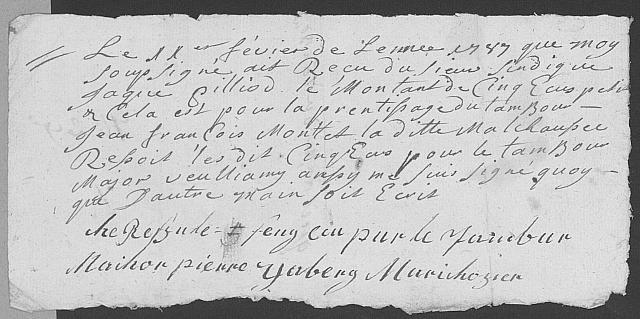 Le 11er févier de Lennee 1787 que moy
Soupsigné ait Recu du sieur Sindique
Jaque Gilliod le Montant de Cinq Ecus petit
& Cela est pour la prentissage du tamBour
Jean francois Montet la ditte Malchaussee
Resoit les dit Cinq Ecus pour le tamBour
Major veulliamy ansy me suis signe quoy
que D'autre main soit Ecrit
feng Cu pur le Tambur
Maihor pierre Yaberg Marichozier